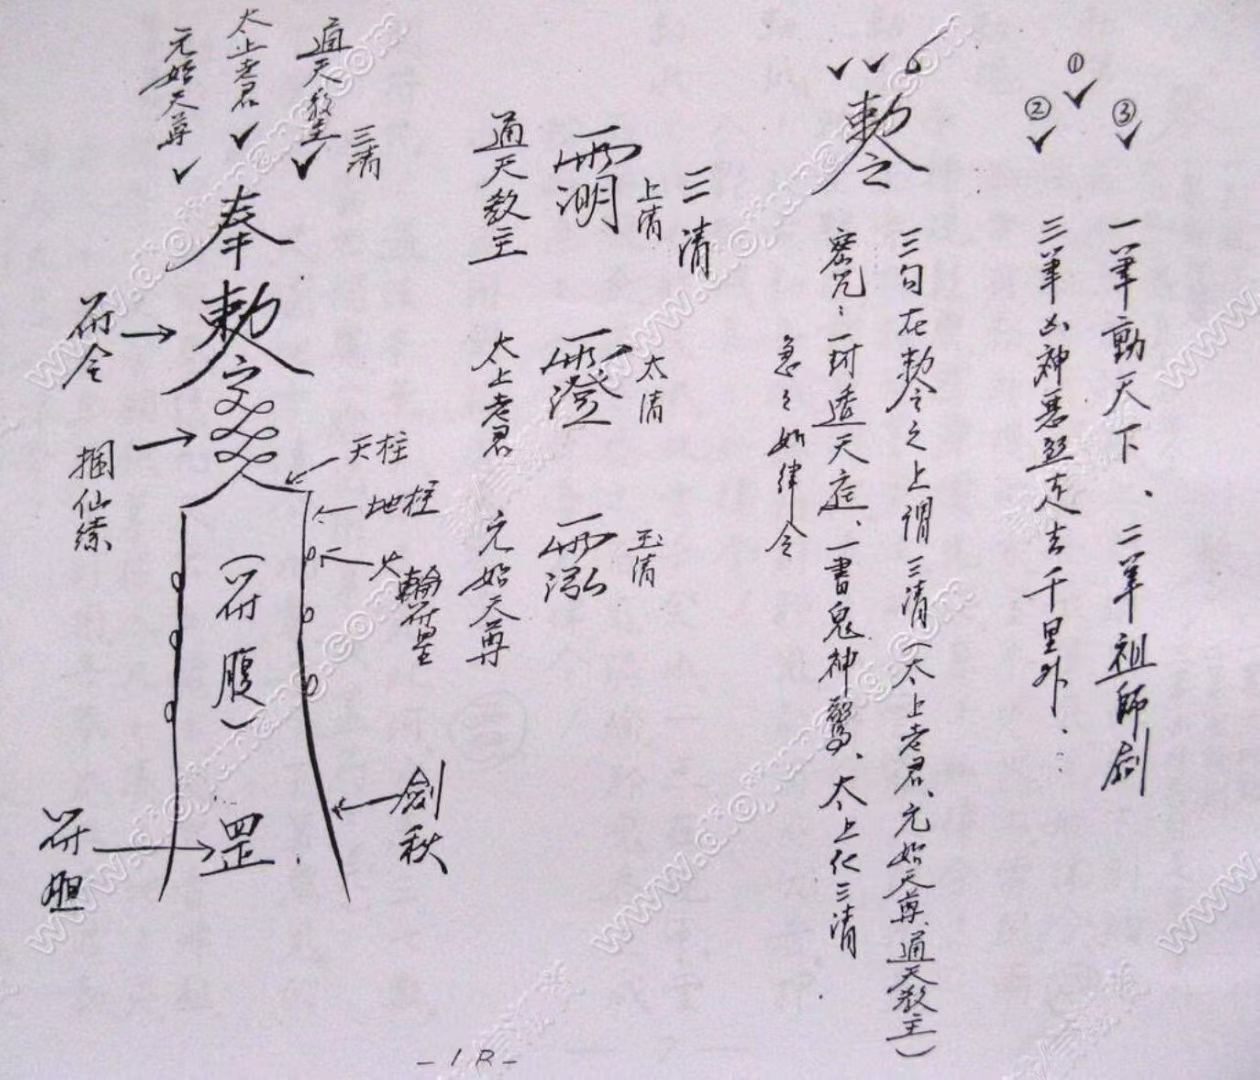 ① ② ③
一筆動天下、二筆祖師劍
三筆凶神惡煞走去千里外
敕令
三句在敕令之上謂三清(太上老君、元始天尊、通天教主)
密咒:一封透天庭、一書鬼神驚、太上化三清
急々如律令
三清
上清
通天教主
太清
太上老君
玉清
元始天尊
通天教主
太上老君
元始天尊
三清
奉
敕
符令
捆仙
天柱
地柱
火輪
(符腹)
劍
符胆
罡
www.daojiangu.com